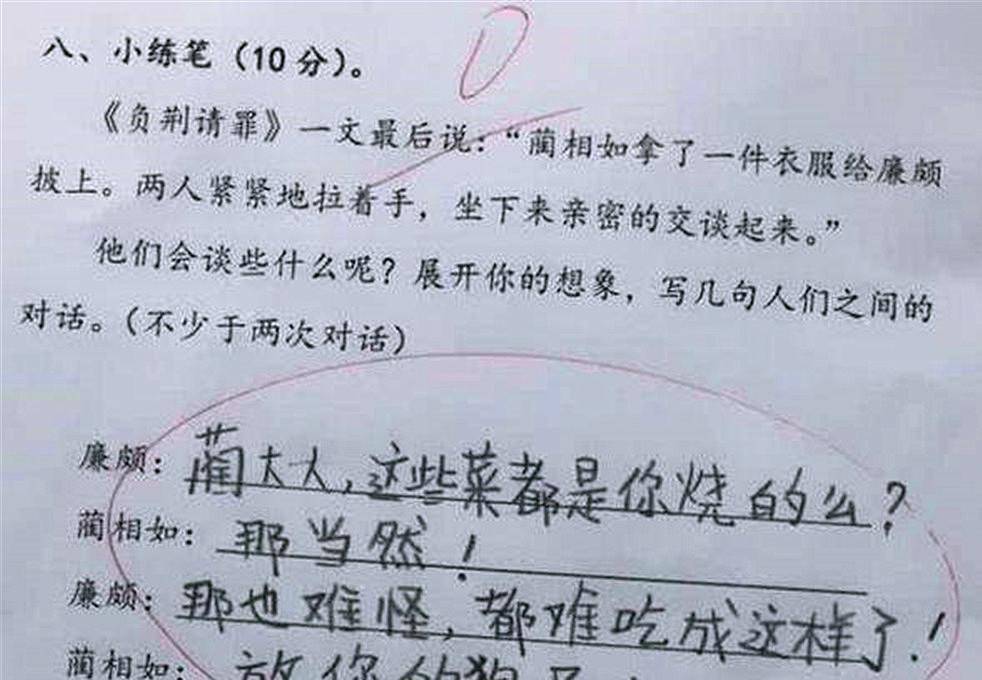 0
八、小练笔（10分）。
《负荆请罪》一文最后说：“蔺相如拿了一件衣服给廉颇
披上。两人紧紧地拉着手，坐下来亲密的交谈起来。”
他们会谈些什么呢？展开你的想象，写几句人们之间的
对话。（不少于两次对话）
廉颇：蔺大人，这些菜都是你烧的么？
蔺相如：那当然！
廉颇：那也难怪，都难吃成这样了！
蔺相如：放你的狗